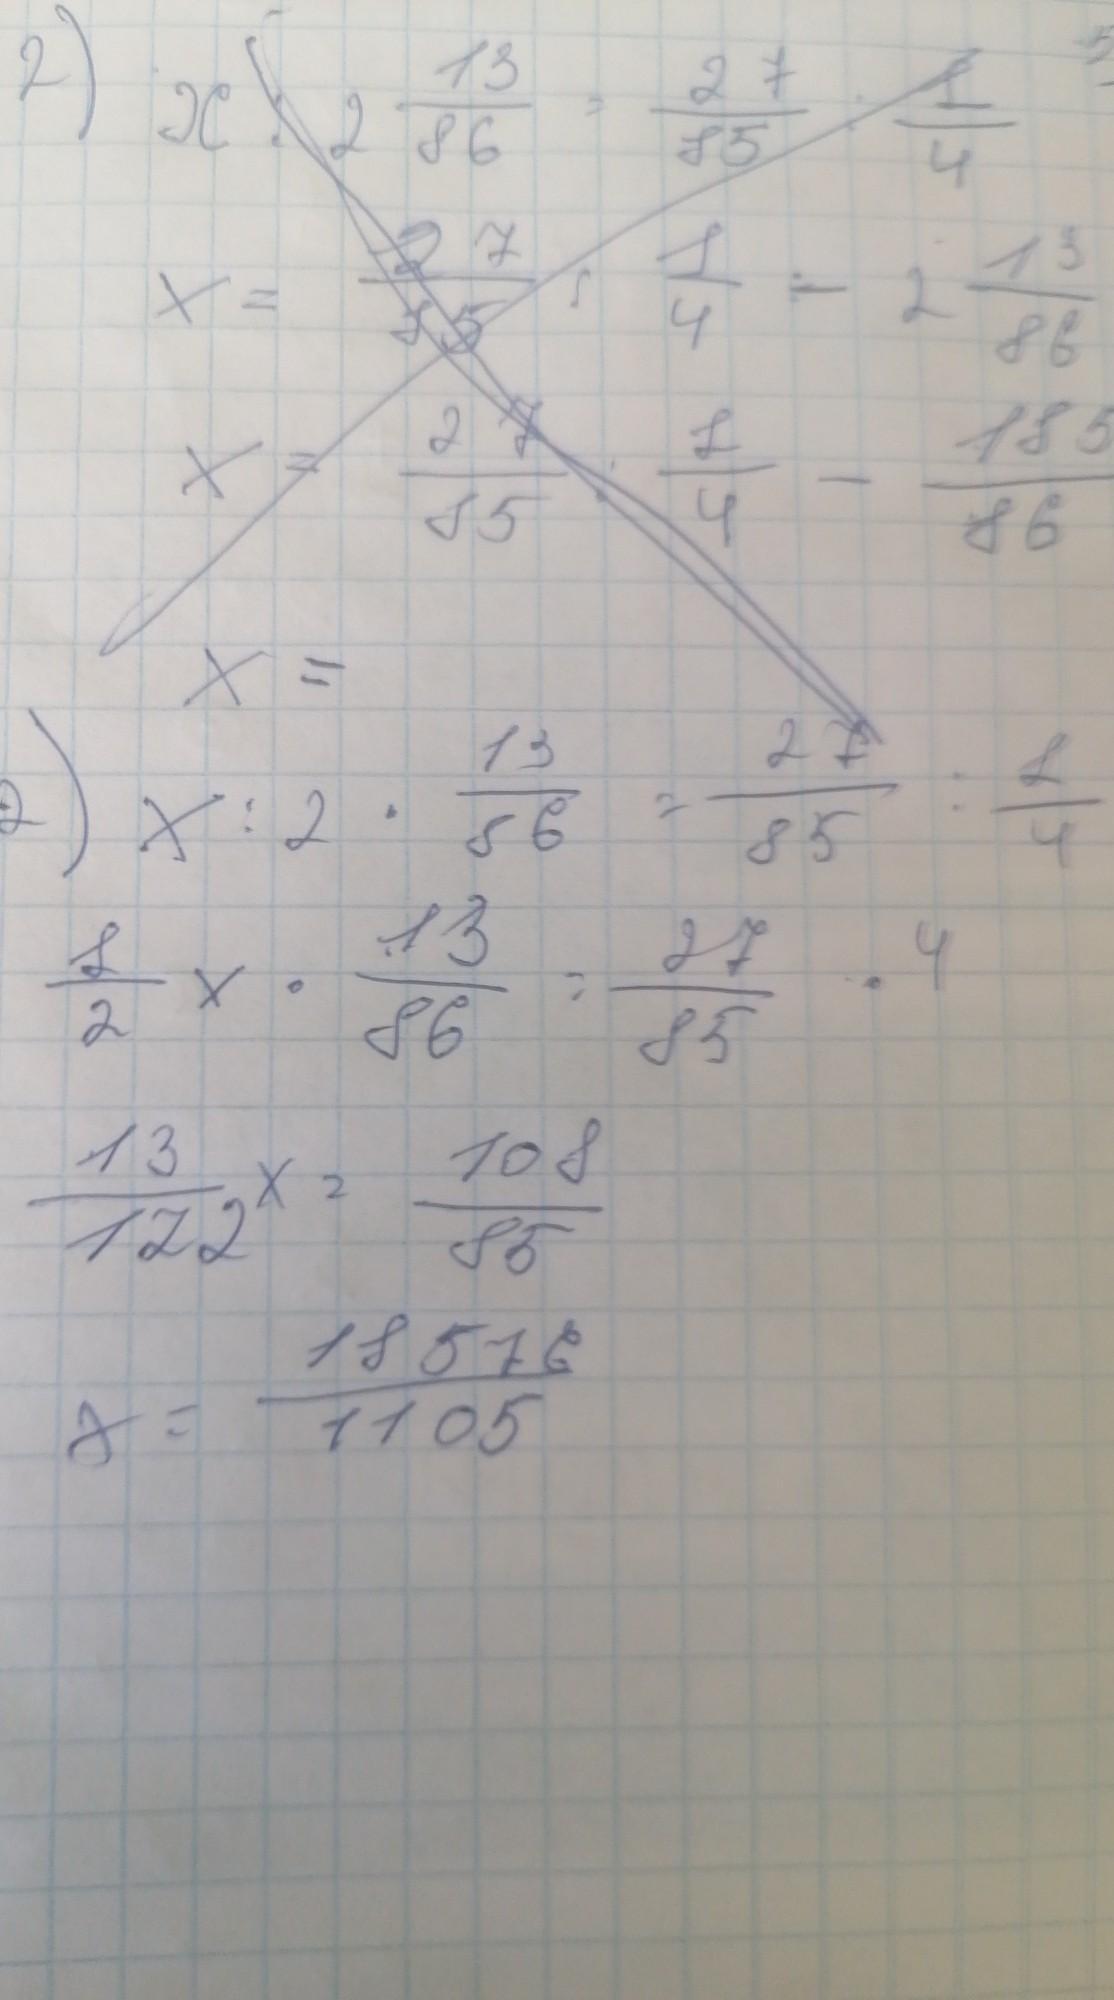 2) x : 2 13/86 = 27/85 : 1/4
x = 27/85 : 1/4 - 2 13/86
x = 27/85 : 1/4 - 185/86
x =
2) x : 2 · 13/86 = 27/85 : 1/4
1/2 x · 13/86 = 27/85 · 4
13/172 x = 108/85
x = 18576/1105